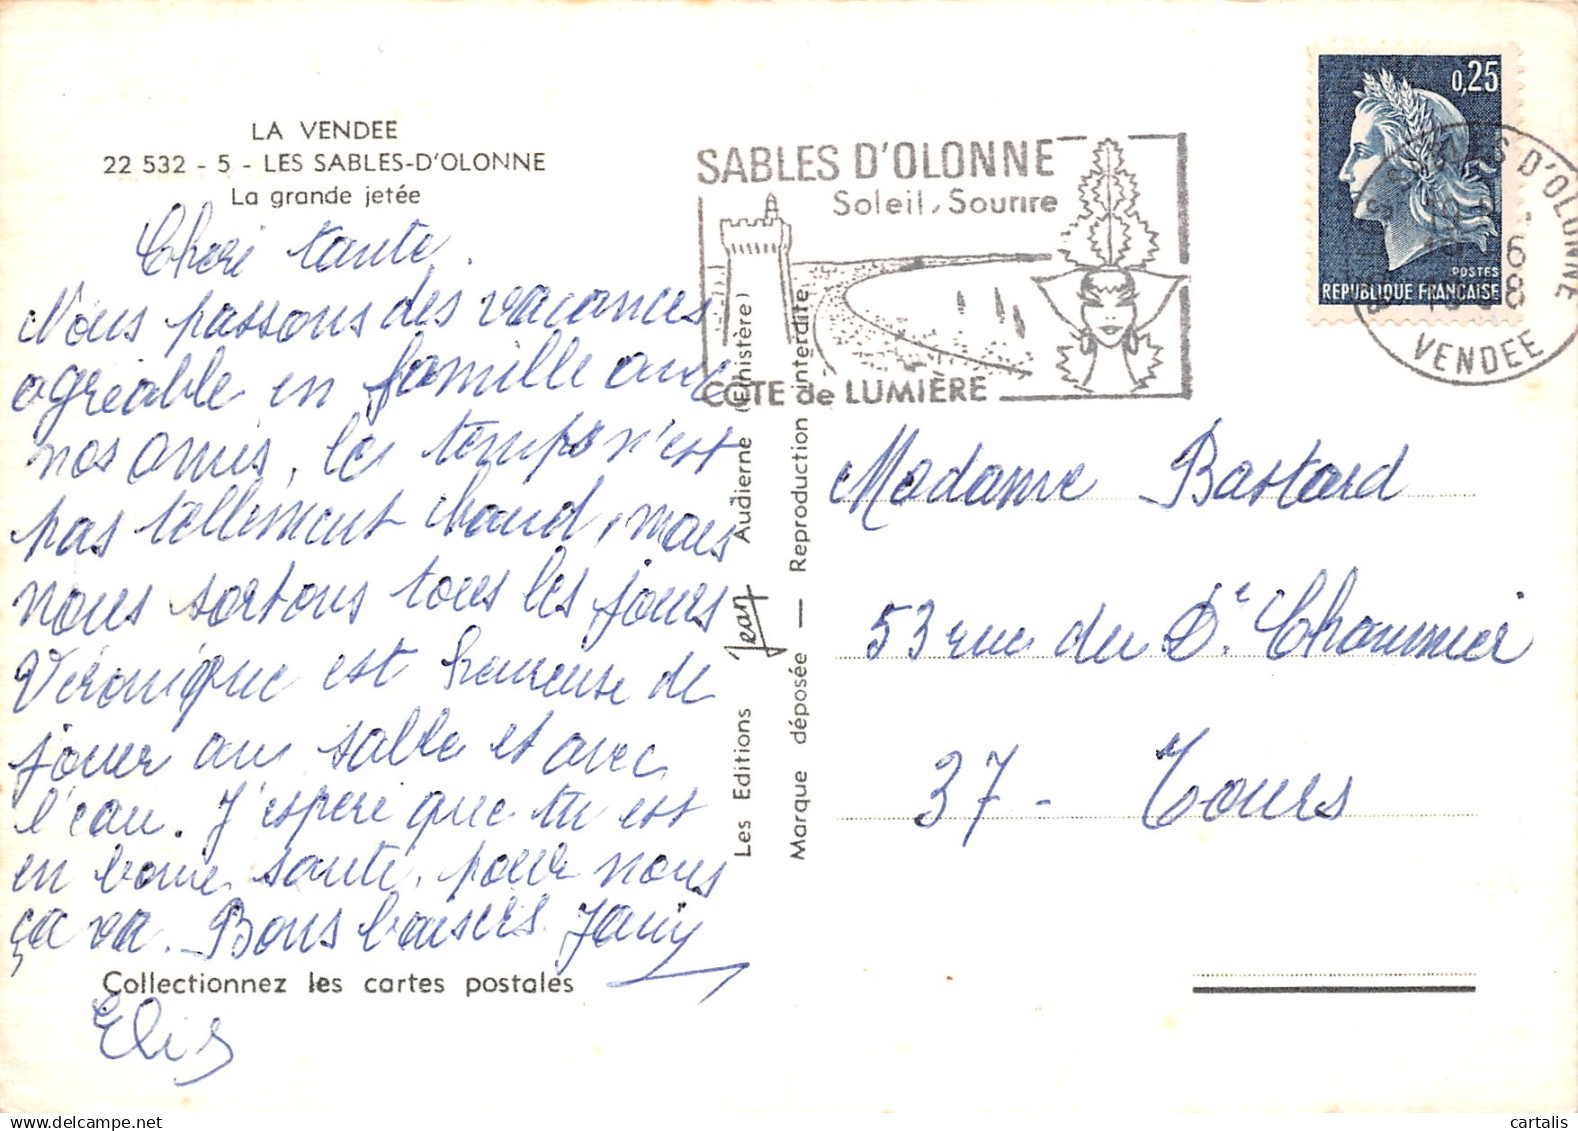 LA VENDEE
22 532 - 5 - LES SABLES-D'OLONNE
La grande jetée
Cheri tante.
Nous passons des vacances
agréable en famille avec
nos amis. les temps n'est
pas tellement chaud, mais
nous sortons tous les jours
Véronique est heureuse de
jouer au sable et avec
l'eau. J'espere que tu est
en bonne santé. pour nous
ça va. Bons baisers. Jany
Collectionnez les cartes postales
Elis
Les Editions Jean Audierne (Finistère)
Marque déposée — Reproduction interdite
SABLES D'OLONNE
Soleil, Sourire
COTE de LUMIÈRE
0,25
POSTES
REPUBLIQUE FRANÇAISE
D'OLONNE
VENDEE
Madame Bastard
53 rue du Dr. Chaumier
37 - Tours
cartalis